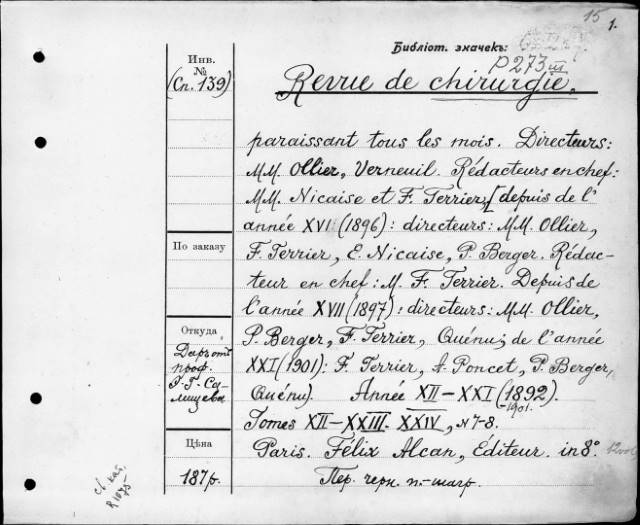 15
1.
Библіот. значекъ:
P 273 III
Инв. №
(Сп. 139)
Revue de chirurgie.
paraissant tous les mois. Directeurs:
MM. Ollier, Verneuil. Rédacteurs en chef:
MM. Nicaise et F. Terrier, [depuis de l'
année XVI (1896): directeurs: MM. Ollier,
F. Terrier, E. Nicaise, P. Berger. Rédac-
teur en chef: M. F. Terrier. Depuis de
l'année XVII (1897): directeurs: MM. Ollier,
P. Berger, F. Terrier, Quénu; de l'année
XXI (1901): F. Terrier, A. Poncet, P. Berger,
Quénu). Année XII–XXI (1892)
–1901.
Tomes XII–XXIII. XXIV, N 7-8.
Paris. Félix Alcan, Editeur. in 8°.
Пер. черн. п.-шагр.
По заказу
Откуда
Даръ отъ
проф.
Г. Г. Са-
лищева
Цѣна
187 р.